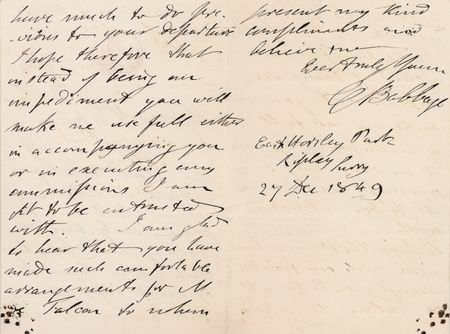 have much to do pre-
vious to your departure
I hope therefore that
instead of being an
impediment you will
make me usefull either
in accompanying you
or in executing any
commissions I am
fit to be entrusted
with. I am glad
to hear that you have
made such comfortable
arrangements for M
Falcon to whom
present my kind
compliments and
believe me
Ever truly Yours
C Babbage
East Horsley Park
Ripley Surry
27 Dec 1849